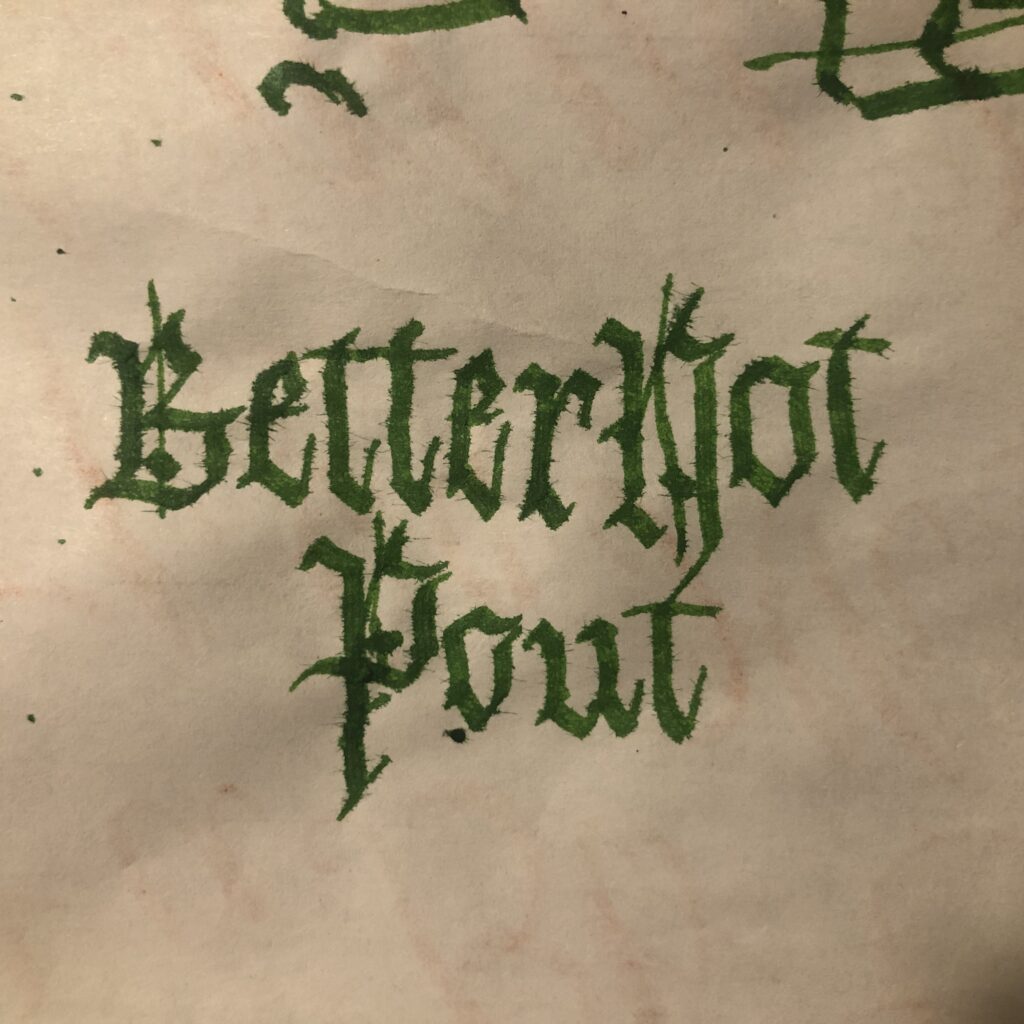 Better Not
Pout